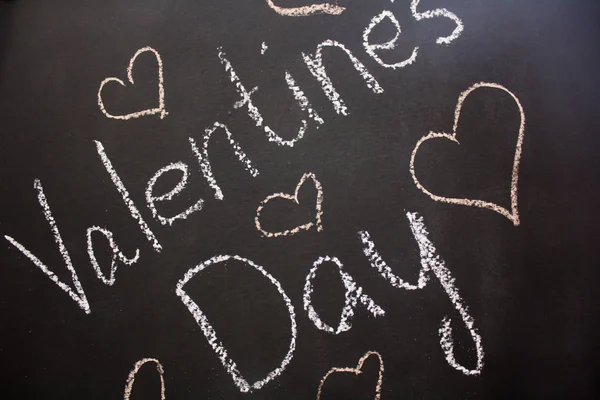 Valentine's
Day